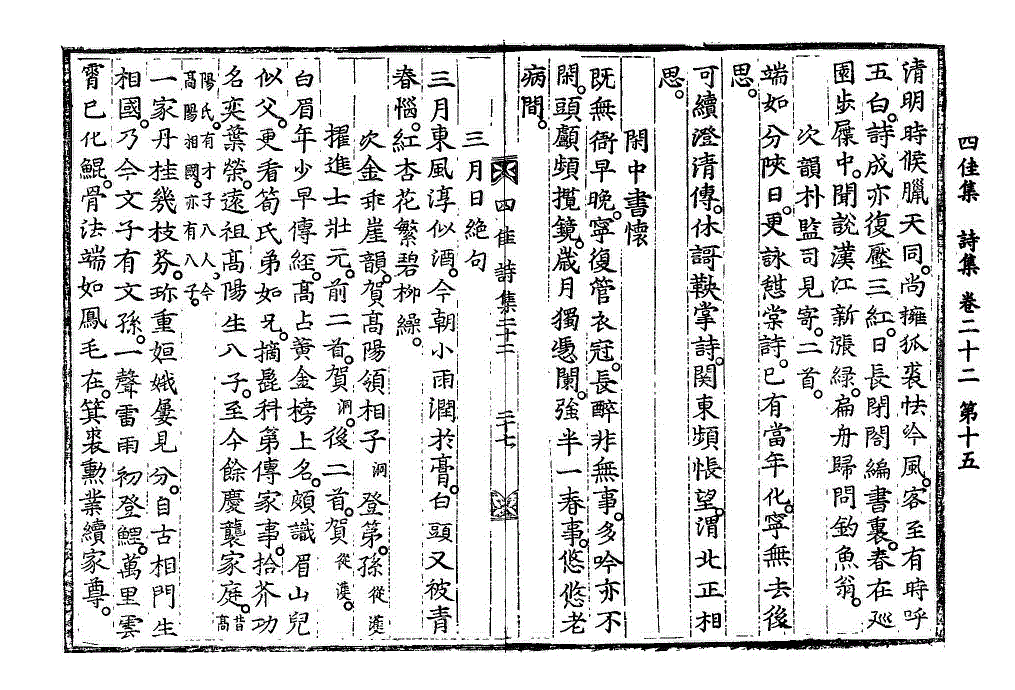 四佳集　詩集　卷二十二　第十五
清明時候臘天同。尚擁狐裘怯吟風。客至有時呼
五白。詩成亦復壓三紅。日長閉閤編書裏。春在巡
園步屧中。聞說漢江新漲綠。扁舟歸問釣魚翁。
次韻朴監司見寄。二首。
端如分陜日。更詠憇棠詩。已有當年化。寧無去後
思。
可續澄清傳。休謌鞅掌詩。関東頻悵望。渭北正相
思。
閑中書懷
旣無衙早晩。寧復管衣冠。長醉非無事。多吟亦不
閑。頭顱頻攬鏡。歲月獨憑闌。強半一春事。悠悠老
病間。
四佳詩集二十二　二十七
三月日絶句
三月東風淳似酒。今朝小雨潤於膏。白頭又被靑
春惱。紅杏花繁碧柳繰。
次金乖崖韻。賀高陽領相子泂登第。孫從漢
擢進士壯元。前二首。賀泂。後二首。賀從漢。
白眉年少早傳經。高占黃金榜上名。頗識眉山兒
似父。更看荀氏弟如兄。摘髭科第傳家事。拾芥功
名奕葉榮。遠祖高陽生八子。至今餘慶襲家庭。昔高
陽氏有才子八人。今
高陽相國。亦有八子。
一家丹桂幾枝芬。珎重姮娥屢見分。自古相門生
相國。乃今文子有文孫。一聲雷雨初登鯉。萬里雲
霄已化鯤。骨法端如鳳毛在。箕裘勳業續家尊。